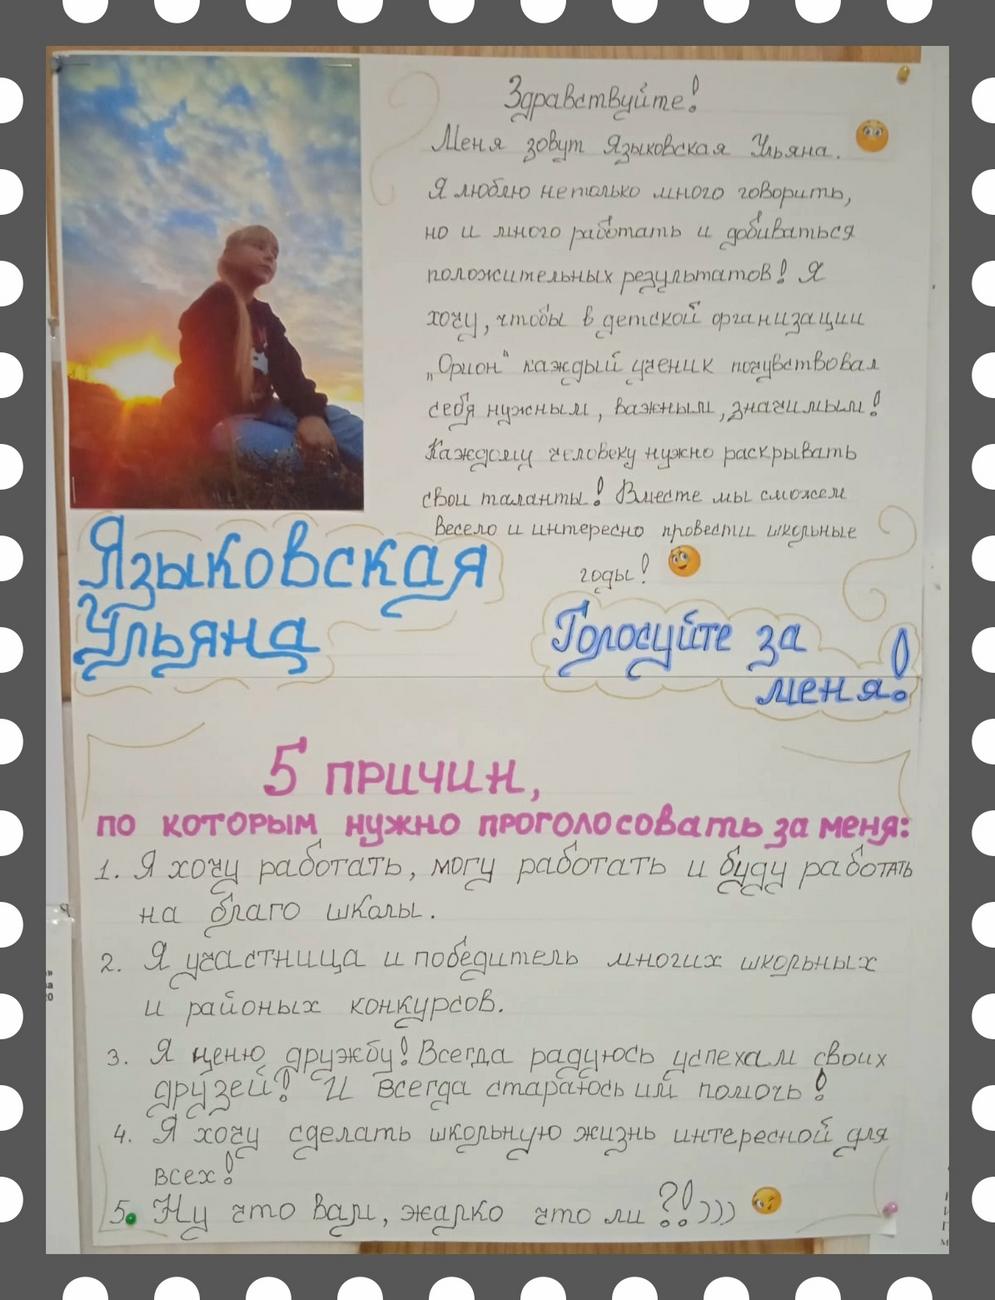 Здравствуйте!
Меня зовут Языковская Ульяна.
Я люблю нетолько много говорить,
но и много работать и добиваться
положительных результатов! Я
хочу, чтобы в детской организации
„Орион“ каждый ученик почувствовал
себя нужным, важным, значимым!
Каждому человеку нужно раскрывать
свои таланты! Вместе мы сможем
весело и интересно провести школьные
годы!
Языковская
Ульяна
Голосуйте за
меня!
5 причин,
по которым нужно проголосовать за меня:
1. Я хочу работать, могу работать и буду работать
на благо школы.
2. Я участница и победитель многих школьных
и районых конкурсов.
3. Я ценю дружбу! Всегда радуюсь успехам своих
друзей! И всегда стараюсь им помочь!
4. Я хочу сделать школьную жизнь интересной для
всех!
5. Ну что вам, жалко что ли?!)))